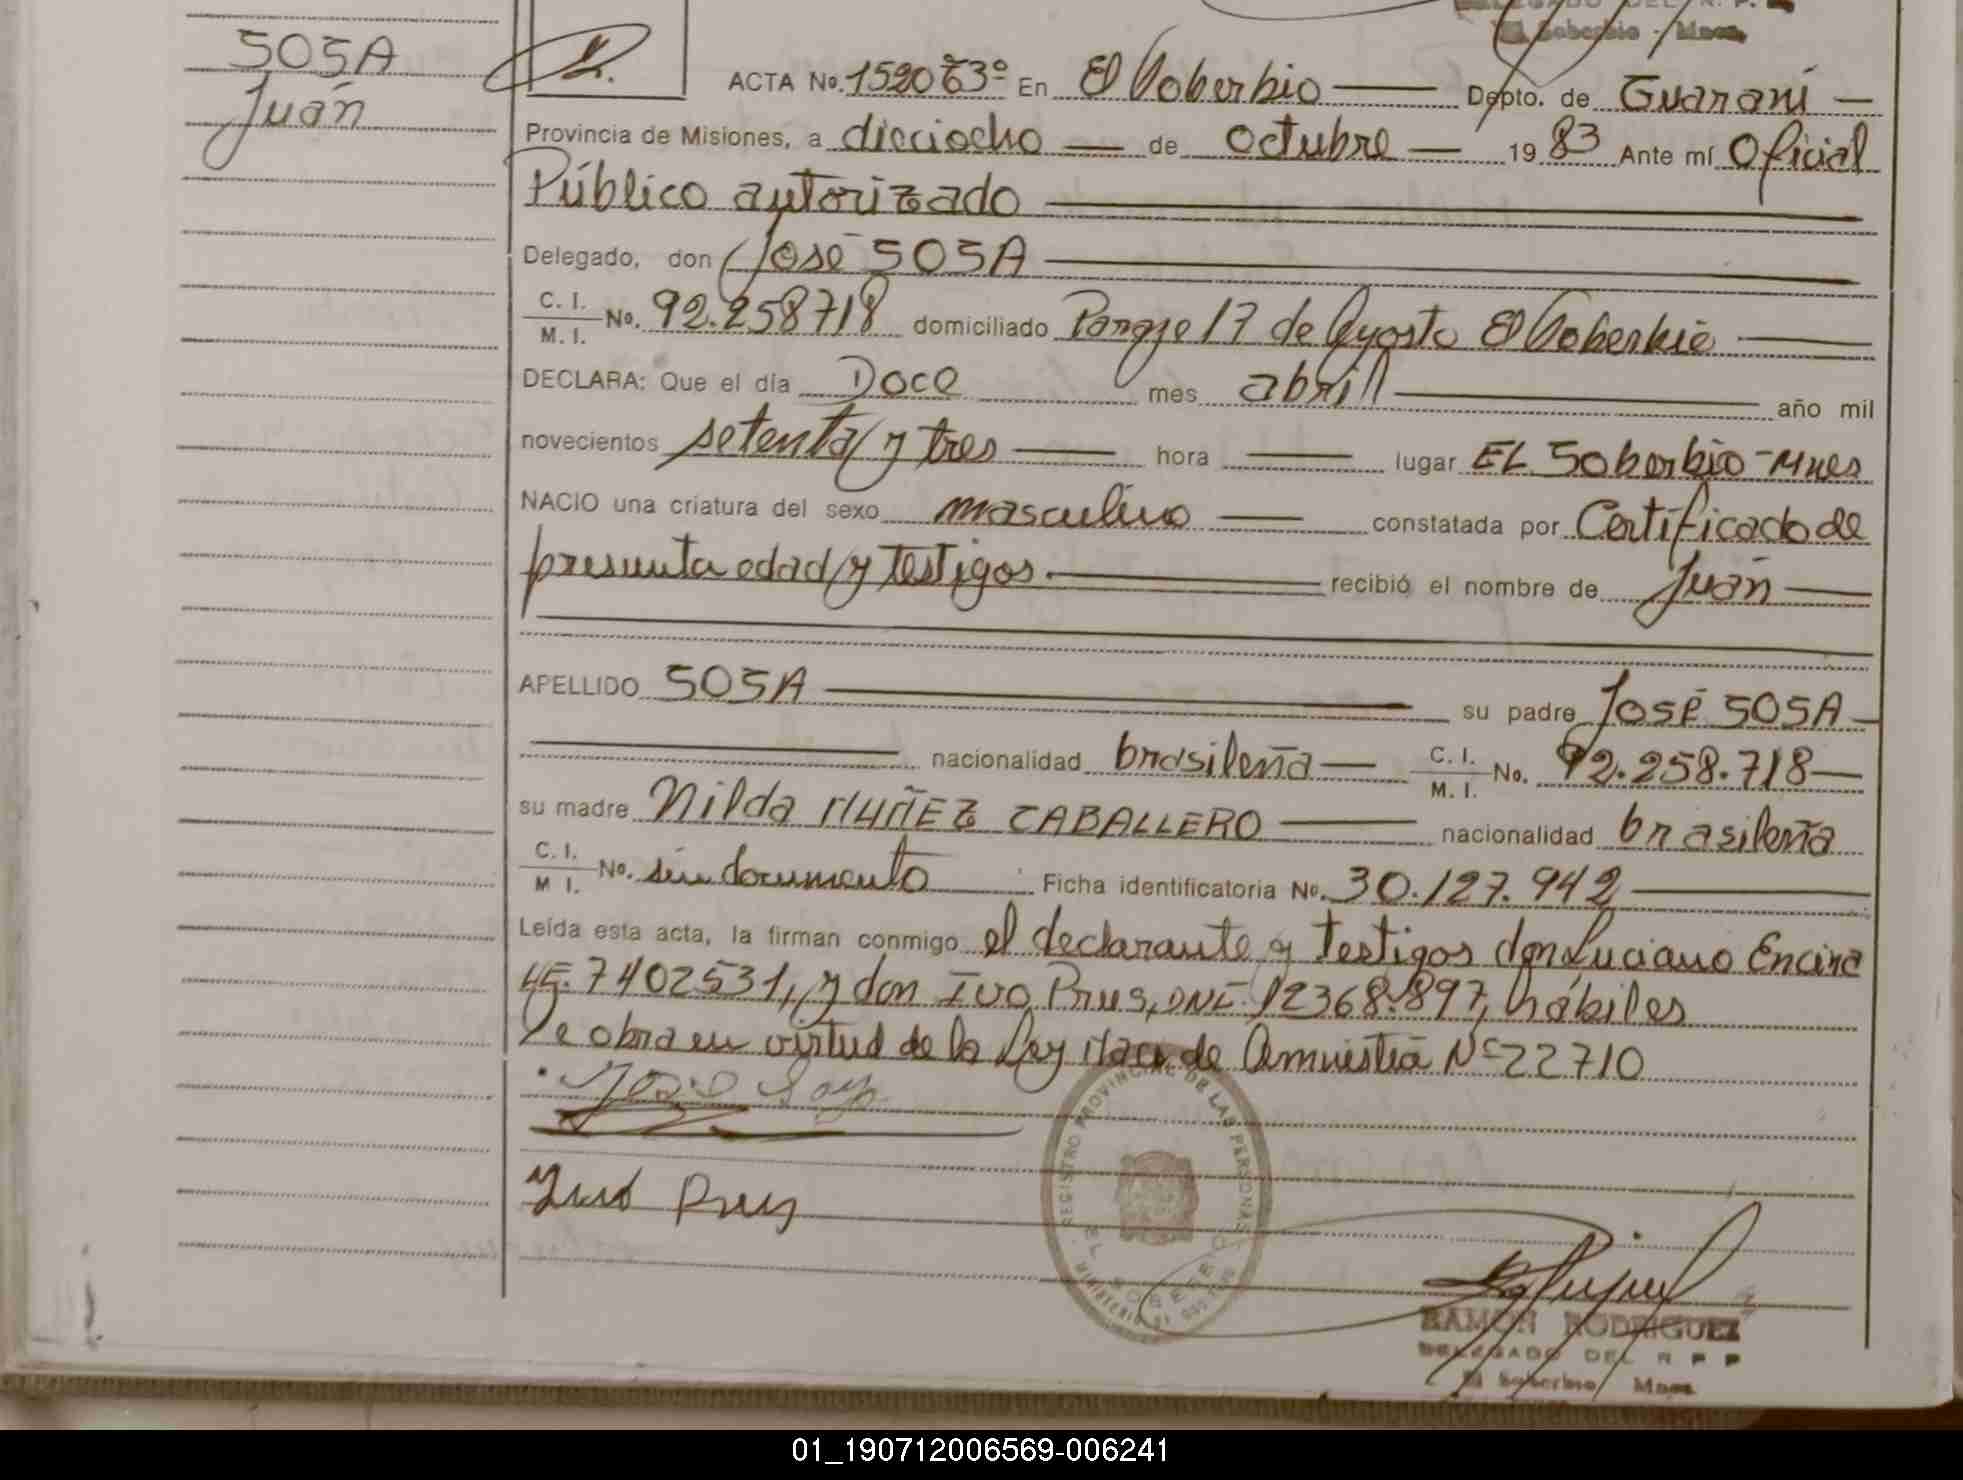 DELEGADO DEL R. P. P.
El Soberbio - Mnes.
SOSA
Juán
ACTA No. 1520 63º En El Soberbio Depto. de Guaraní
Provincia de Misiones, a dieciocho de octubre 19 83 Ante mí Oficial
Público autorizado
Delegado, don José SOSA
C. I. / M. I. No. 92.258718 domiciliado Paraje 17 de Agosto El Soberbio
DECLARA: Que el día Doce mes abril año mil
novecientos setenta y tres hora lugar EL Soberbio-Mnes
NACIO una criatura del sexo masculino constatada por Certificado de
presunta edad y testigos. recibió el nombre de Juán
APELLIDO SOSA su padre JOSÉ SOSA
nacionalidad brasileña C. I. / M. I. No. 92.258.718
su madre Nilda NUÑEZ CABALLERO nacionalidad brasileña
C. I. / M I. No. sin documento Ficha identificatoria No. 30.127.942
Leída esta acta, la firman conmigo el declarante y testigos don Luciano Encina
LE. 7402531, y don Ivo Prus, DNI. 12368.897, hábiles
Se obra en virtud de la Ley Nac. de Amnistía Nº 22710
José Sosa
Prus
REGISTRO PROVINCIAL DE LAS PERSONAS
EL SOBERBIO
RAMON RODRIGUEZ
DELEGADO DEL R P P
El Soberbio Mnes.
01_190712006569-006241